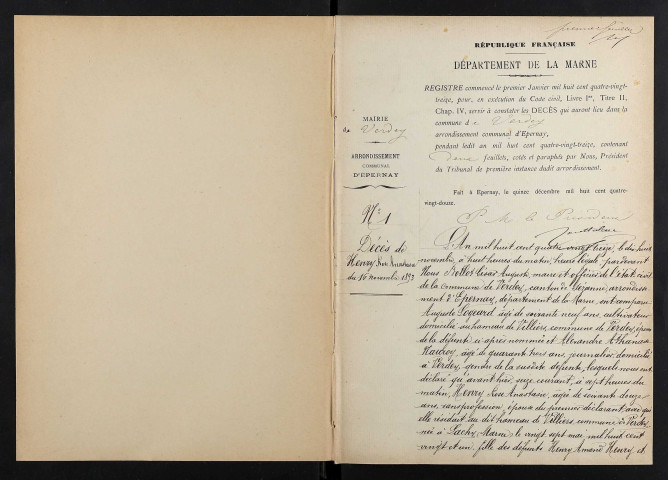 premier feuillet
RÉPUBLIQUE FRANÇAISE
DÉPARTEMENT DE LA MARNE
REGISTRE commencé le premier Janvier mil huit cent quatre-vingt-
treize, pour, en exécution du Code civil, Livre Ier, Titre II,
Chap. IV, servir à constater les DÉCÈS qui auront lieu dans la
commune de Verdey
arrondissement communal d'Epernay,
pendant ledit an mil huit cent quatre-vingt-treize, contenant
deux feuillets, cotés et paraphés par Nous, Président
du Tribunal de première instance dudit arrondissement.
Fait à Epernay, le quinze décembre mil huit cent quatre-
vingt-douze.
P. M. le Président
MAIRIE
de Verdey
ARRONDISSEMENT
COMMUNAL
D'EPERNAY
No 1
Décès de
Henry Rose Anastasie
du 16 novembre 1893
L'An mil huit cent quatre vingt treize, le dix huit
novembre, à huit heures du matin, heure légale, pardevant
Nous Bollot César Auguste, maire et officier de l'état civil
de la commune de Verdey, canton de Sézanne, arrondisse-
ment d'Epernay, département de la Marne, ont comparu
Auguste Logeard âgé de soixante neuf ans, cultivateur
domicilié au hameau de Villiers, commune de Verdey, époux
de la défunte ci après nommée et Alexandre Athanase
âgé de quarante trois ans, journalier, domicilié
à Verdey, gendre de la susdite défunte, lesquels nous ont
déclaré qu'avant hier, seize courant, à sept heures du
matin, Henry Rose Anastasie, âgée de soixante douze
ans, sans profession, épouse du premier déclarant, avec qui
elle résidait au dit hameau de Villiers commune de Verdey
née à Lachy, Marne le vingt sept mai mil huit cent
vingt et un, fille des défunts Henry Amand Henry et